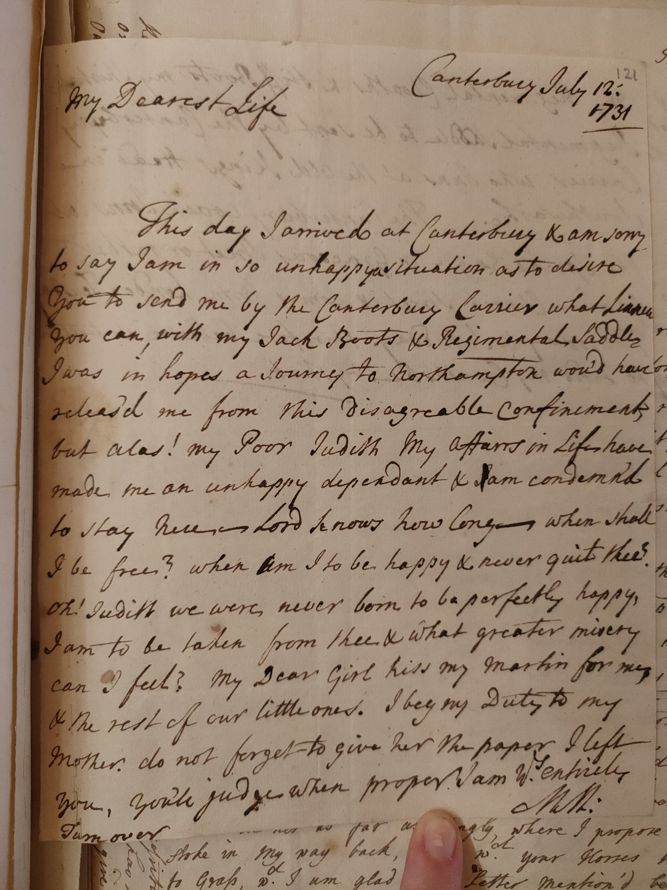 121
Canterbury July 12:
1731
My Dearest Life
This day I arrived at Canterbury & am sorry
to say I am in so unhappy a situation as to desire
You to send me by the Canterbury Carrier what Linnen
you can, with my Jack Boots & Regimental Saddle,
I was in hopes a Journey to Northampton wou'd have
releas'd me from this disagreable confinement,
but alas! my Poor Judith My affairs in Life have
made me an unhappy dependant & I am condemn'd
to stay here — Lord knows how long — when shall
I be free? when am I to be happy & never quit thee?
oh! Judith we were never born to be perfectly happy,
I am to be taken from thee & what greater misery
can I feel? My Dear Girl kiss my Martin for me,
& the rest of our little ones. I beg my Duty to my
Mother. do not forget to give her the paper I left
you, you'll judge when proper. I am Yrs entirely
MM:
Turn over
where I propose
in my way back, wch your Horses
to Grass, I am glad Letter mention'd